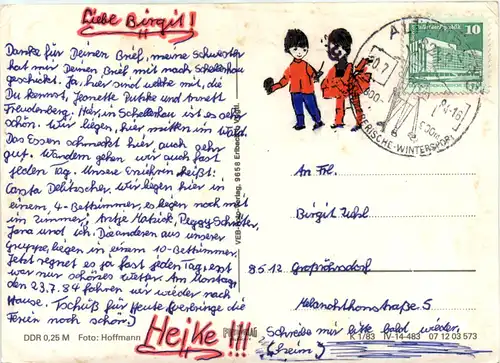 Liebe Birgit!
Danke für Deinen Brief, meine Schwester
hat mir Deinen Brief mit nach Schellerhau
geschickt. Ja, hier sind welche mit, die
Du kennst, Jeanette und Annett
Freudenberg. Hier in Schellerhau ist es sehr
schön. Wir liegen, hier mitten im Wald.
Das Essen schmeckt hier auch sehr
gut. Wandern gehen wir auch fast
jeden Tag. Unsere heißt:
Carola Delitzscher. Wir liegen hier in
einem 4-Bettzimmer, es liegen noch mit
im Zimmer, Antje Peggy Schröter,
Jana und ich. Die anderen aus unserer
Gruppe, liegen in einem 10-Bettzimmer.
Jetzt regnet es ja fast jeden Tag, erst
war nur schönes Wetter. Am Montag,
den 23.7.84 fahren wir wieder nach
Hause. Tschüß für Heute (verbringe die
Ferien noch schön.)
Heike!!!
DDR 0,25 M Foto: Hoffmann
VEB
10
An Frl.
Birgit
8512 Großröhrsdorf
Melanchthonstraße 5
Schreibe mir bitte bald wieder,
K 1/83 IV-14-483 07 12 03 573